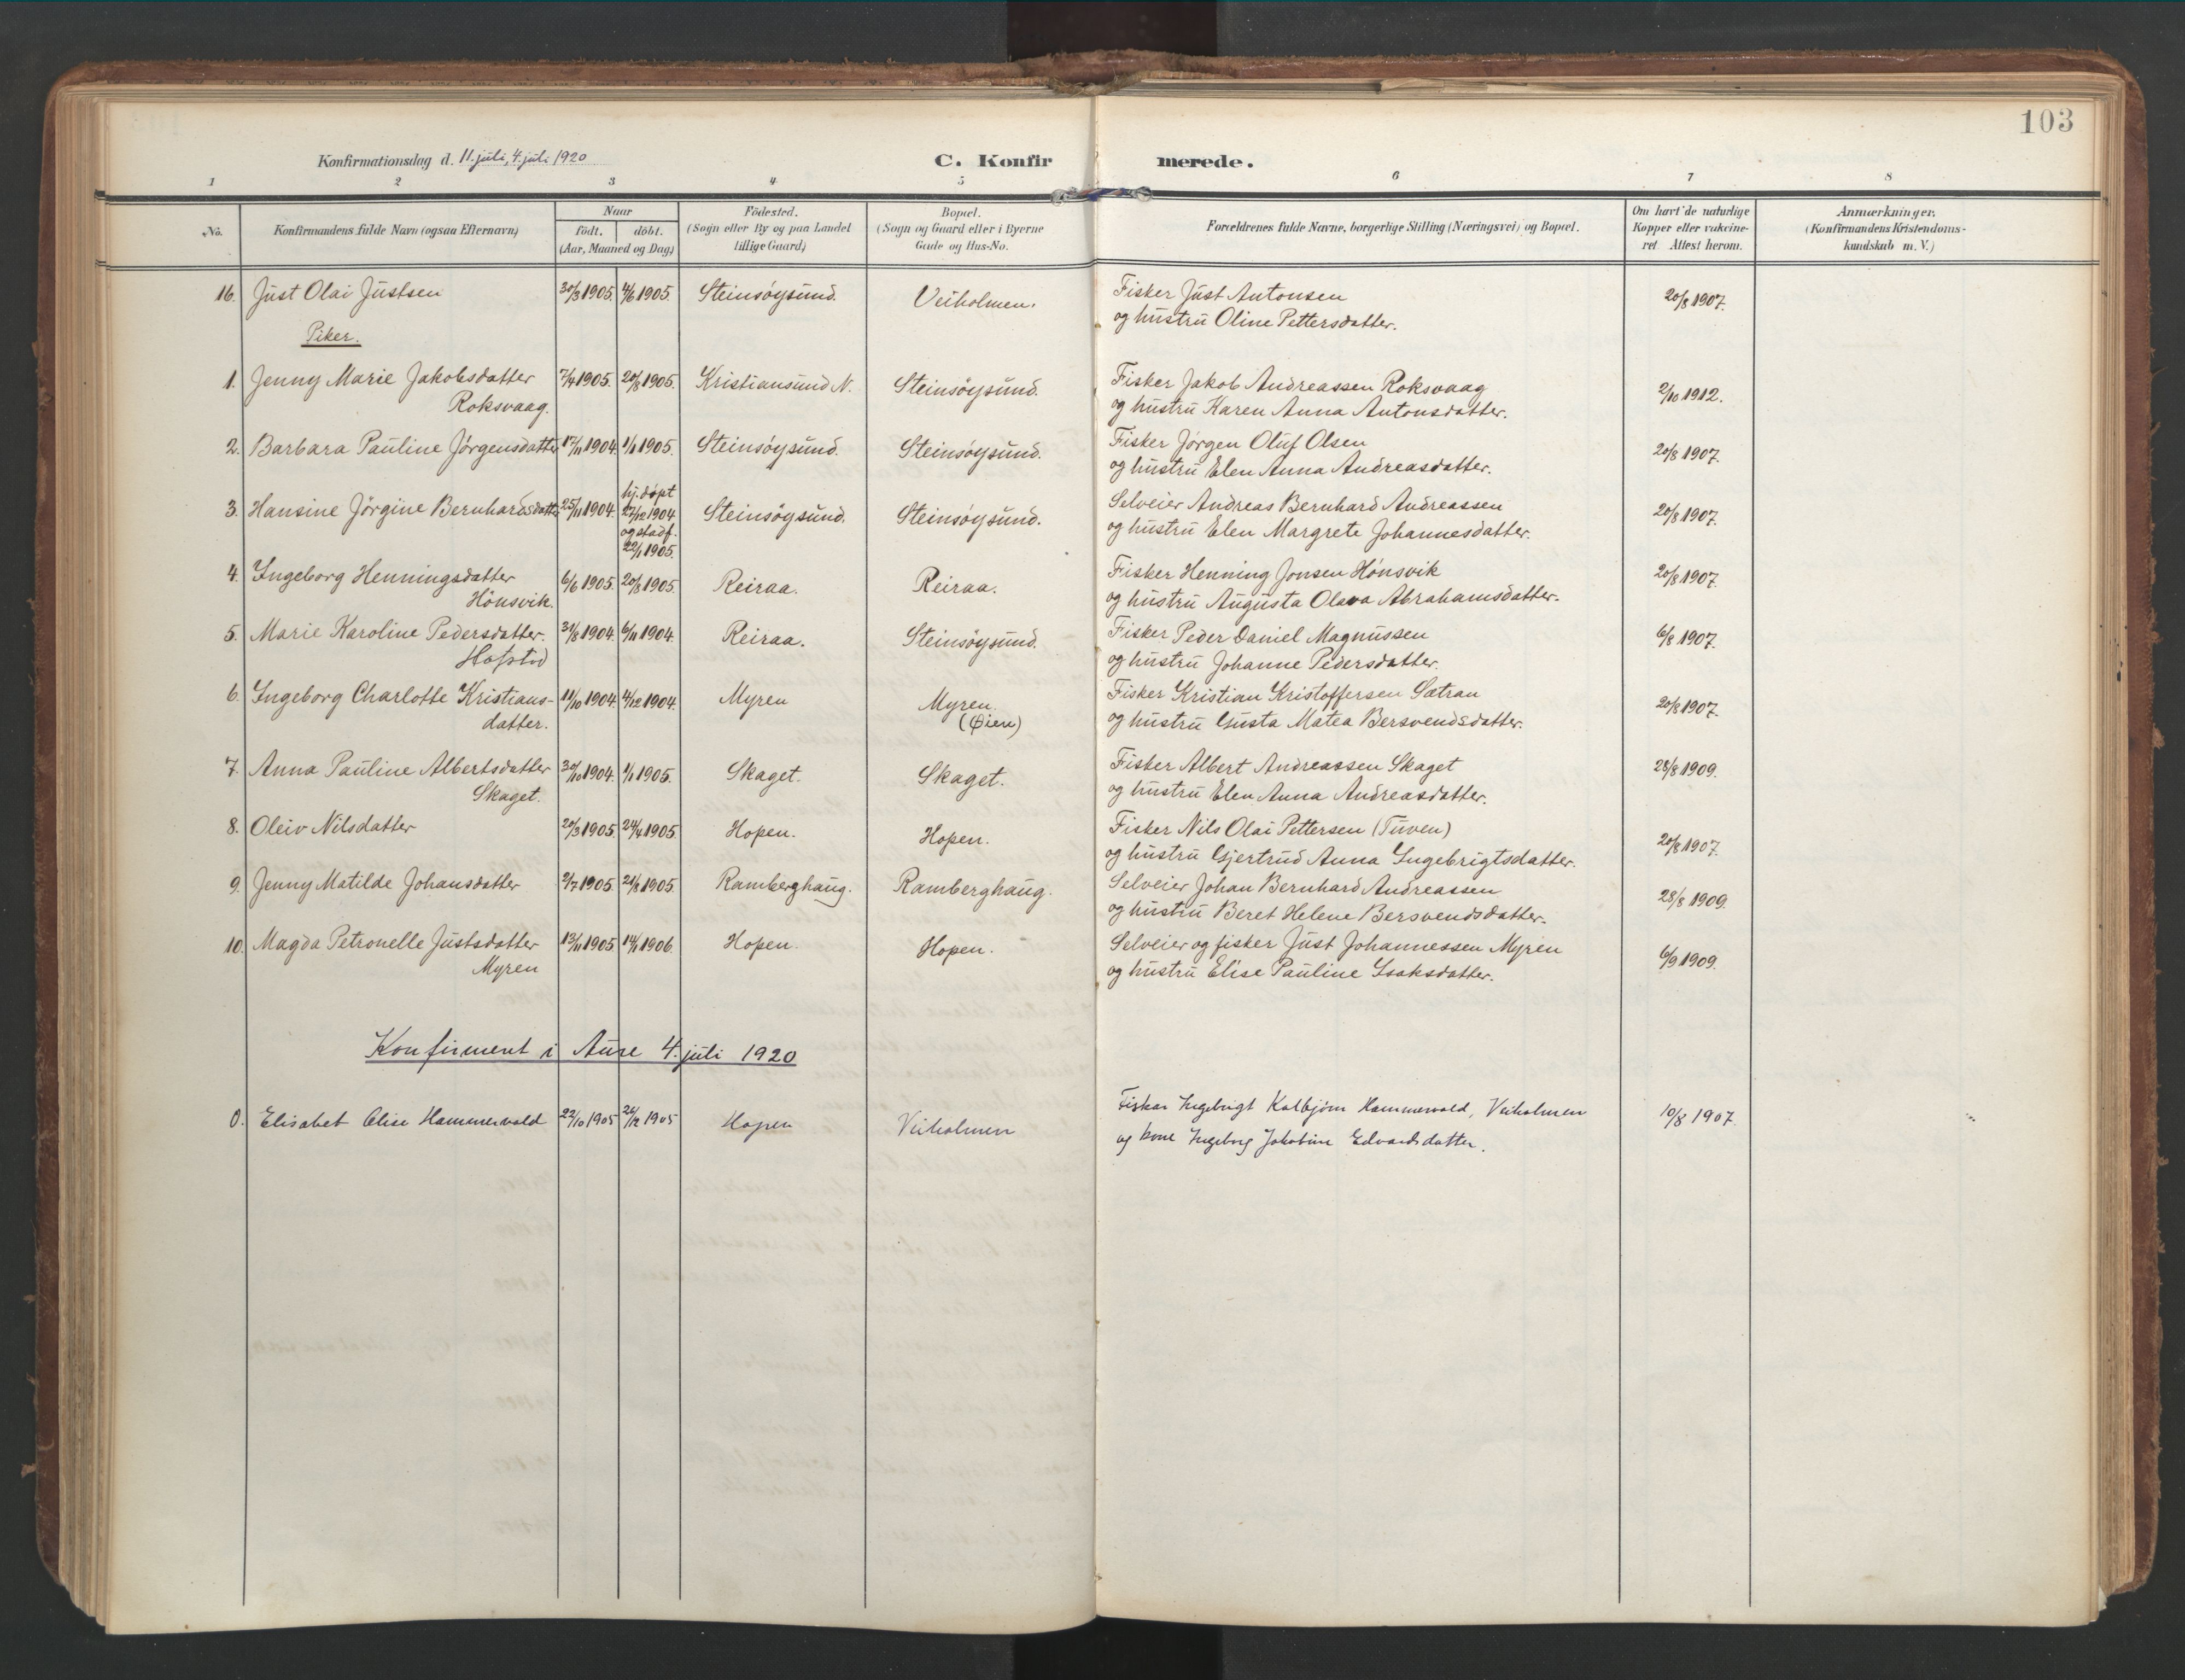 103
Konfirmationsdag d. 11. juli, 4. juli 1920
C. Konfirmerede.
1 2 3 4 5 6 7 8
No.
Konfirmandens fulde Navn (ogsaa Efternavn)
Naar
födt. döbt.
(Aar, Maaned og Dag)
Födested.
(Sogn eller By og paa Landet
tillige Gaard)
Bopæl.
(Sogn og Gaard eller i Byerne
Gade og Hus-No.
Forældrenes fulde Navne, borgerlige Stilling (Næringsvei) og Bopæl.
Om havt de naturlige
Kopper eller vakcine-
ret. Attest herom.
Anmærkninger.
(Konfirmandens Kristendoms-
kundskab m. V.)
16. Just Olai Justsen 30/3 1905. 4/6 1905. Steinsöysund. Veiholmen. Fisker Just Antonsen 20/8 1907.
og hustru Oline Pettersdatter.
Piker.
1. Jenny Marie Jakobsdatter 7/4 1905. 20/8 1905. Kristiansund N. Steinsöysund. Fisker Jakob Andreassen Roksvaag 2/10 1912.
Roksvaag. og hustru Karen Anna Antonsdatter.
2. Barbara Pauline Jörgensdatter 17/11 1904. 1/1 1905. Steinsöysund. Steinsöysund. Fisker Jörgen Oluf Olsen 20/8 1907.
og hustru Elen Anna Andreasdatter.
3. Hansine Jörgine Bernhardsdatter 25/11 1904. hj. döpt 27/12 1904 og stadf. 22/1 1905. Steinsöysund. Steinsöysund. Selveier Andreas Bernhard Andreassen 20/8 1907.
og hustru Elen Margrete Johannesdatter.
4. Ingeborg Henningsdatter 6/6 1905. 20/8 1905. Reiraa. Reiraa. Fisker Henning Jonsen Hönsvik 20/8 1907.
Hönsvik. og hustru Augusta Olava Abrahamsdatter.
5. Marie Karoline Pedersdatter. 31/8 1904. 6/11 1904. Reiraa. Steinsöysund. Fisker Peder Daniel Magnussen 6/8 1907.
Hofstad og hustru Johanne Pedersdatter.
6. Ingeborg Charlotte Kristians- 11/10 1904. 4/12 1904. Myren Myren. Fisker Kristian Kristoffersen Sætran 20/8 1907.
datter. (Öien) og hustru Gusta Matea Bersvendsdatter.
7. Anna Pauline Albertsdatter 30/10 1904. 1/1 1905. Skaget. Skaget. Fisker Albert Andreassen Skaget 28/8 1909.
Skaget. og hustru Elen Anna Andreasdatter.
8. Oleiv Nilsdatter 20/3 1905. 24/4 1905. Hopen. Hopen. Fisker Nils Olai Pettersen (Tuven) 20/8 1907.
og hustru Gjertrud Anna Ingebrigtsdatter.
9. Jenny Matilde Johansdatter 2/7 1905. 21/8 1905. Ramberghaug. Ramberghaug. Selveier Johan Bernhard Andreassen 28/8 1909.
og hustru Beret Helene Bersvendsdatter.
10. Magda Petronelle Justsdatter 13/11 1905 14/1 1906. Hopen. Hopen. Selveier og fisker Just Johannessen Myren 6/9 1909.
Myren og hustru Elise Pauline Isaksdatter.
Konfirment i Aure 4. juli 1920
0. Elisabet Elise Hammervold 22/10 1905 26/12 1905 Hopen Veiholmen Fisker Ingebrigt Kolbjörn Hammervold, Veiholmen 10/8 1907.
og kone Ingeborg Jakobine Edvardsdatter.